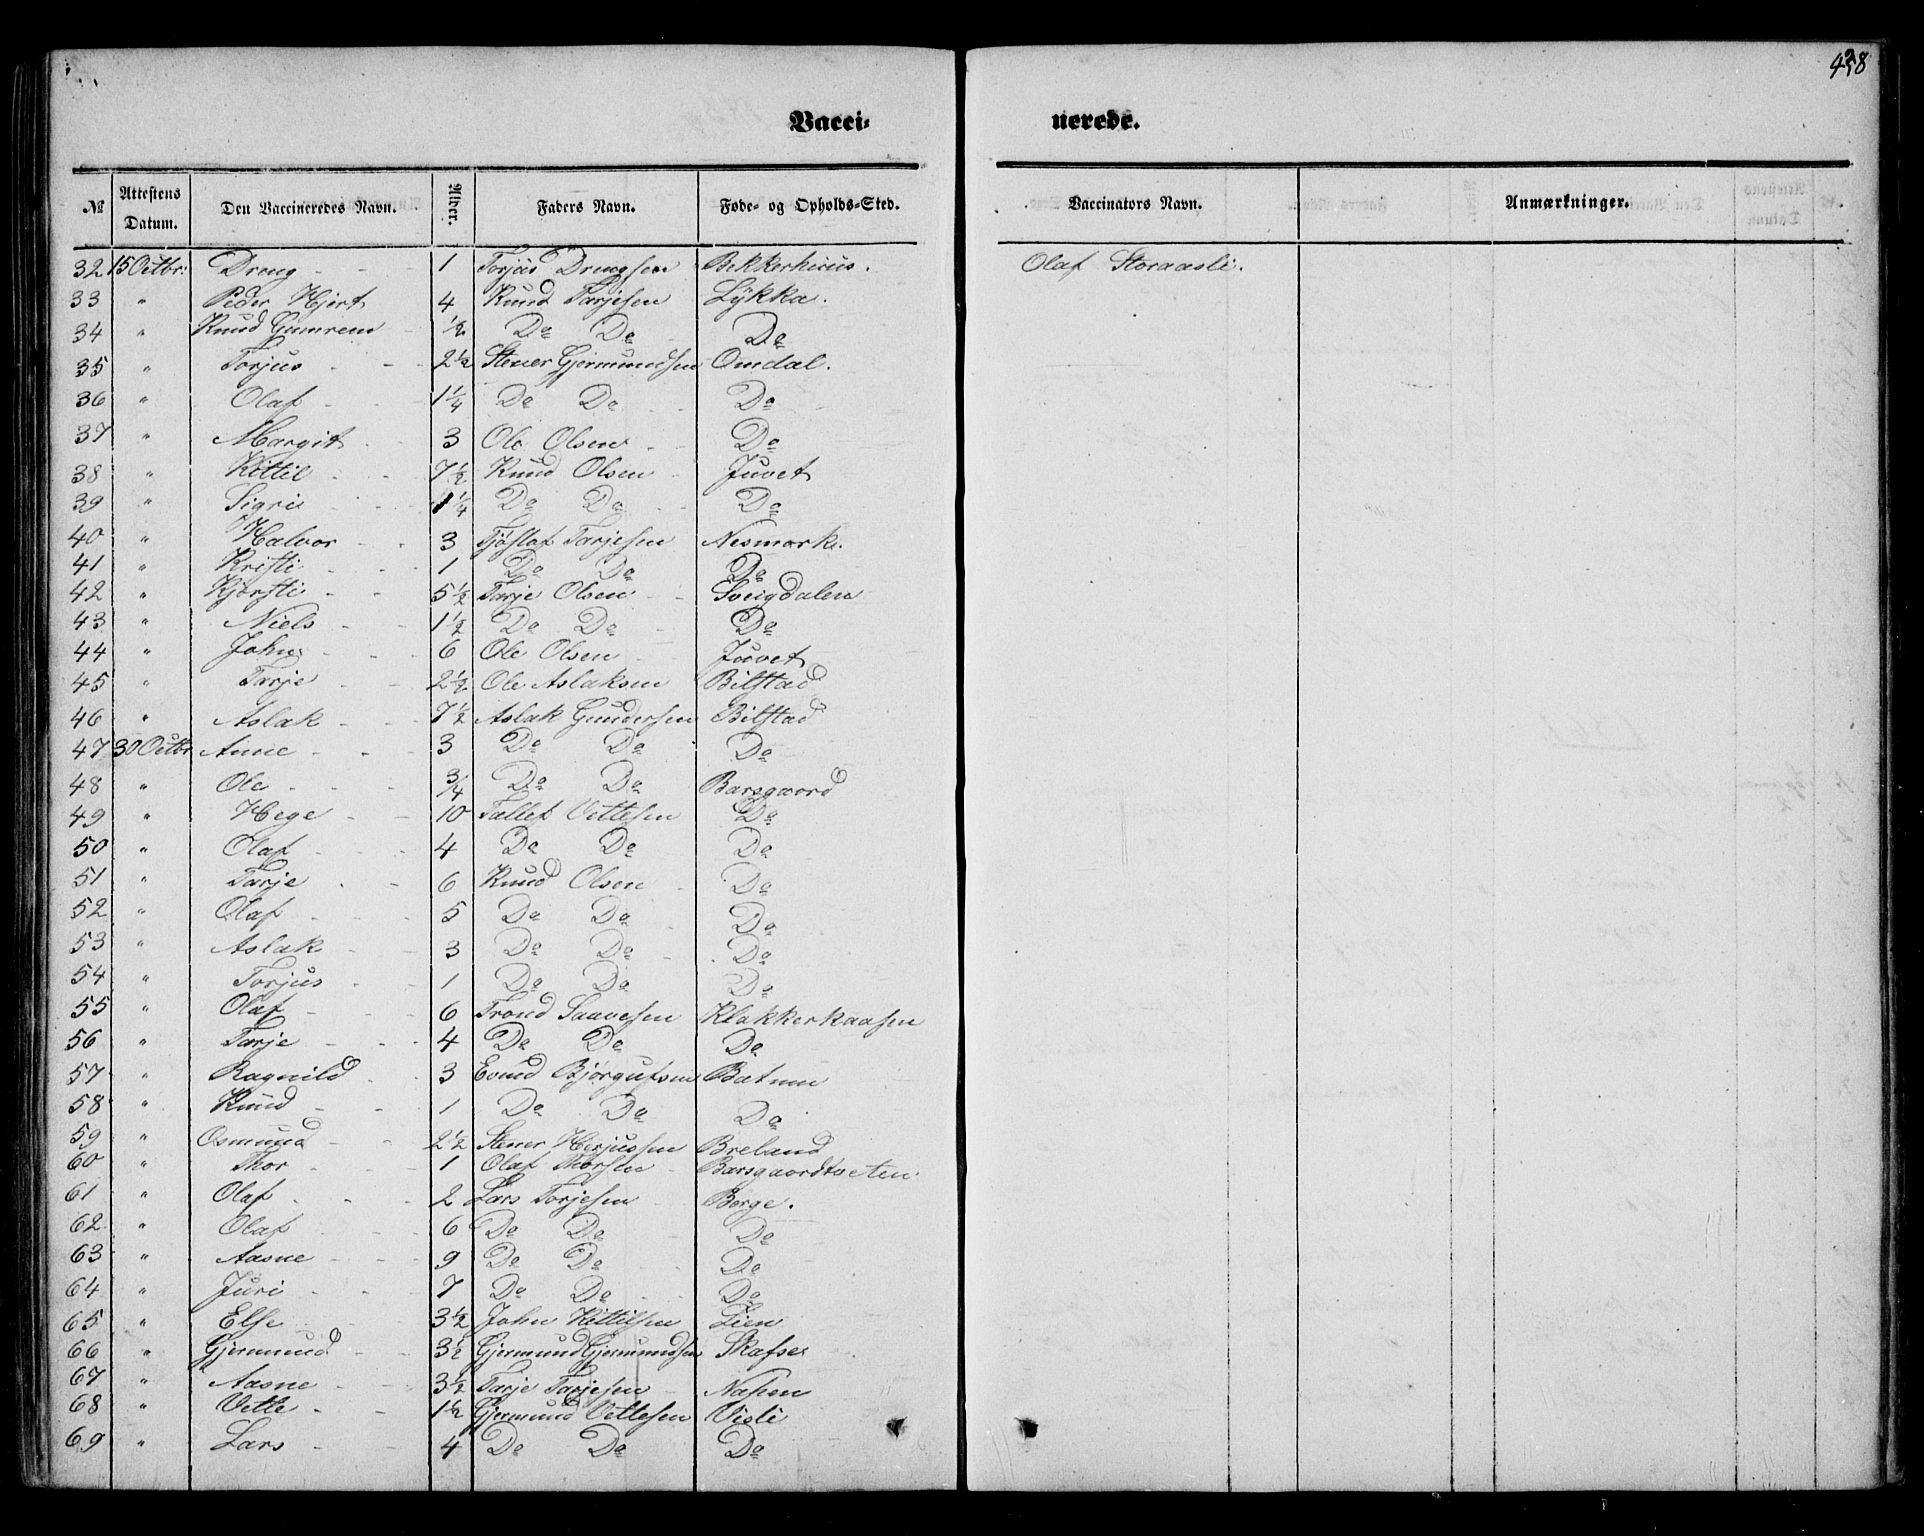 428
Vacci- nerede.
No Attestens Datum. Den Vaccineredes Navn. Alder. Faders Navn. Føde- og Opholds-Sted. Vaccinators Navn. Anmærkninger.
32 15 Octbr: Dreng 1 Torjus Drengsen Bekkerhuus. Olaf Storaasli.
33 " Peder Hjort 4 Knud Tarjesen Lykka.
34 " Knud 1/2 Do Do Do
35 " Torjus 2 1/2 Stener Gjermundsen Omdal.
36 " Olaf 1 1/4 Do Do Do
37 " Margit 3 Ole Olsen Do
38 " Kittil 7 1/2 Knud Olsen Juvet
39 " Sigri 1 1/4 Do Do Do
40 " Halvor 3 Tjøstof Tarjesen Nesmark.
41 " Kristi 1 Do Do Do
42 " Kjersti 5 1/2 Tarje Olsen Sveigdalen
43 " Niels 1 1/2 Do Do Do
44 " John 6 Ole Olsen Juvet
45 " Tarje 2 1/2 Ole Aslaksen Bilstad
46 " Aslak 7 1/2 Aslak Gundersen Bilstad
47 30 Octbr Anne 3 Do Do Do
48 " Ole 3/4 Do Do Barsgaard
49 " Hege 10 Tallef Vettesen Do
50 " Olaf 4 Do Do Do
51 " Tarje 6 Knud Olsen Do
52 " Olaf 5 Do Do Do
53 " Aslak 3 Do Do Do
54 " Torjus 1 Do Do Do
55 " Olaf 6 Trond Saavesen Klakkerkaasen
56 " Tarje 4 Do Do Do
57 " Ragnild 3 Evind Bjørgufsen
58 " Knud 1 Do Do Do
59 " Osmund 2 1/2 Stener Herjussen Breland
60 " Thor 1 Olaf Thorsen Barsgaardtveten
61 " Olaf 2 Lars Torjesen Berge.
62 " Olaf 6 Do Do Do
63 " Aasne 9 Do Do Do
64 " Juri 7 Do Do Do
65 " Else 3 1/2 John Kittilsen Lien
66 " Gjermund 3 1/2 Gjermund Gjermundsen Skafse
67 " Aasne 3 1/2 Tarje Tarjesen
68 " Vetle 1 1/2 Gjermund Vetlesen Visli
69 " Lars 4 Do Do Do